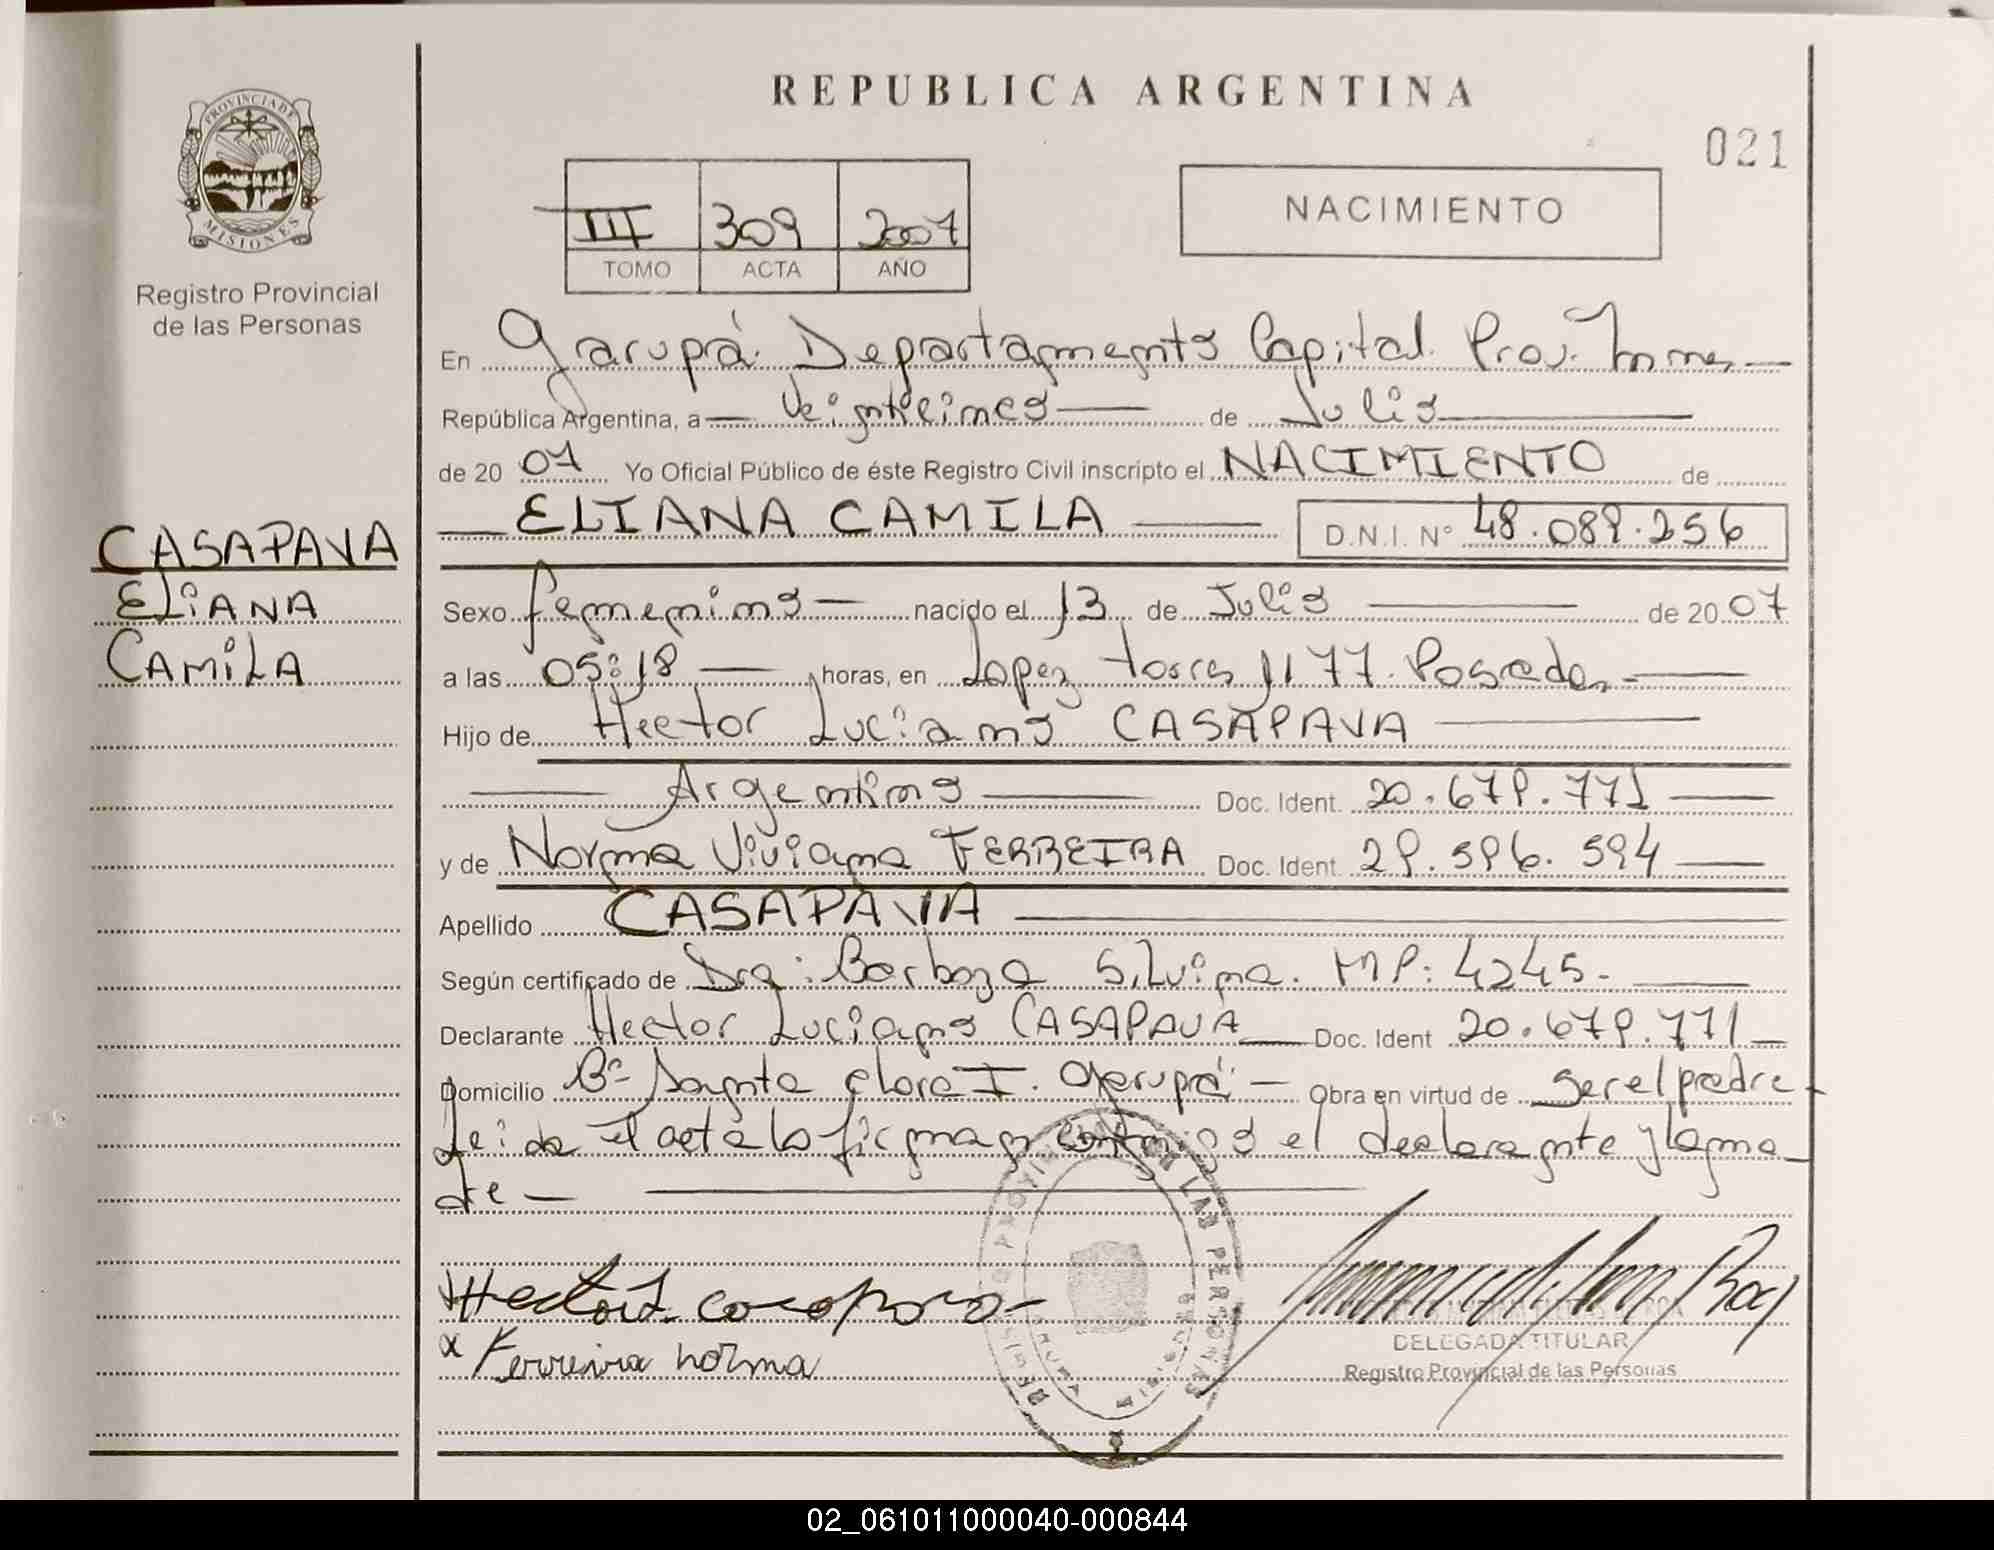 REPUBLICA ARGENTINA
021
PROVINCIA DE
MISIONES
Registro Provincial
de las Personas
III 309 2007
TOMO ACTA AÑO
NACIMIENTO
En Garupá. Departamento Capital. Prov. Mnes
República Argentina, a Veinticinco de Julio
de 2007 Yo Oficial Público de éste Registro Civil inscripto el NACIMIENTO de
ELIANA CAMILA D.N.I. N° 48.089.256
CASAPAVA
ELiANA
CAMiLA
Sexo femenino nacido el 13 de Julio de 2007
a las 05:18 horas, en Lopez Torres 1177. Posadas
Hijo de Hector Luciano CASAPAVA
Argentino Doc. Ident. 20.679.771
y de Norma Viviana FERREIRA Doc. Ident. 29.596.594
Apellido CASAPAVA
Según certificado de Dra: Barboza Silvina. MP: 4245.
Declarante Hector Luciano CASAPAVA Doc. Ident 20.679.771
Domicilio B° Santa Clara I. Garupá Obra en virtud de ser el padre
Leida el acta la firman conmigo el declarante y la ma
dre
Ferreira norma
DELEGADA TITULAR
Registro Provincial de las Personas
02_061011000040-000844